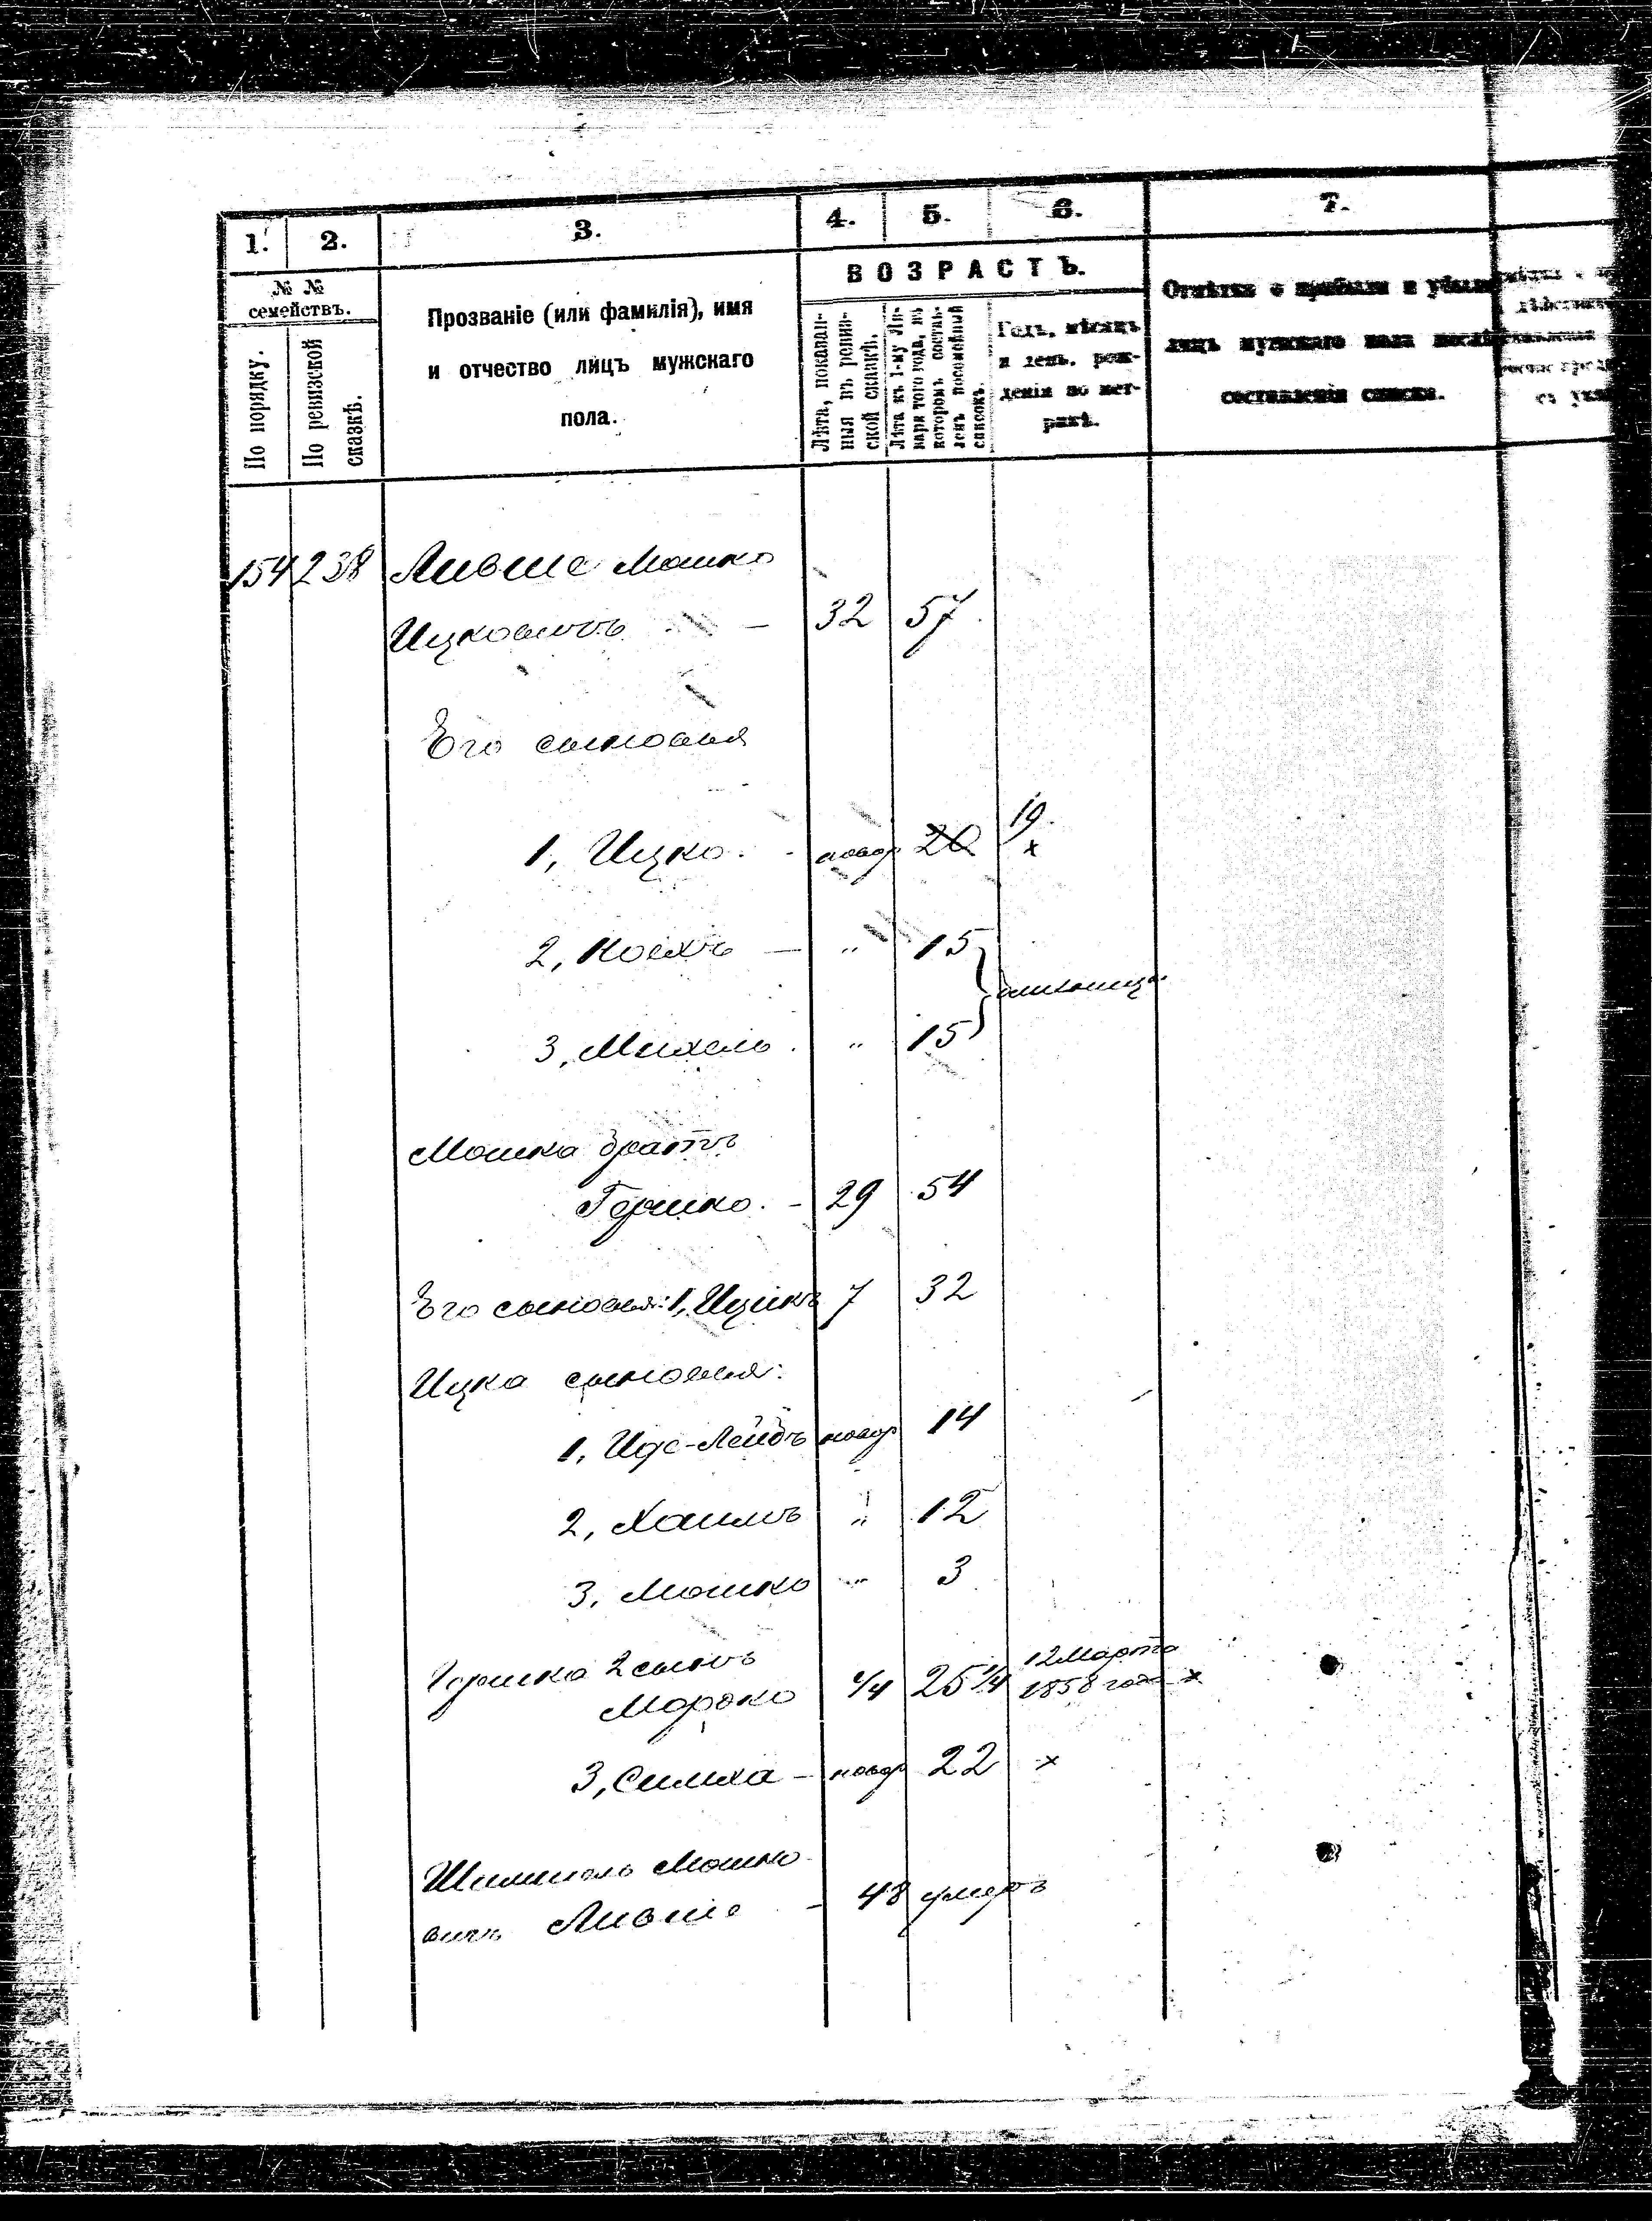 1. 2. 3. 4. 5. 6. 7.
№ №
семействъ.
По порядку.
По ревизской
сказкѣ.
Прозваніе (или фамилія), имя
и отчество лицъ мужскаго
пола.
ВОЗРАСТЪ.
Лѣта, показан-
ныя въ ревиз-
ской сказкѣ.
Лѣта къ 1-му Ян-
варя того года, въ
которомъ состав-
ленъ посемейный
списокъ.
Годъ, мѣсяцъ
и день, рож-
денія по мет-
рикѣ.
Отмѣтка о прибыли и убыли
лицъ мужскаго пола послѣ
составленія списка.
154 238 Лившіе Мошко
Ицковичъ — 32 57
Его сыновья
1, Ицко. - новор 20 19. х
2, — „ 15
близнецы
3, Михель. „ 15
Мошка братъ
Гершко. - 29 54
Его сыновья: 1, Ицикъ 7 32
Ицка сыновья:
1, -Лейбъ новор 14
2, Хаимъ „ 12
3, Мошко „ 3
Гершка 2 сынъ 12 Марта
Мордко 1/4 25 1/4 1858 года х
3, Симха - новор 22 х
Мошко-
вичъ - 48 умеръ